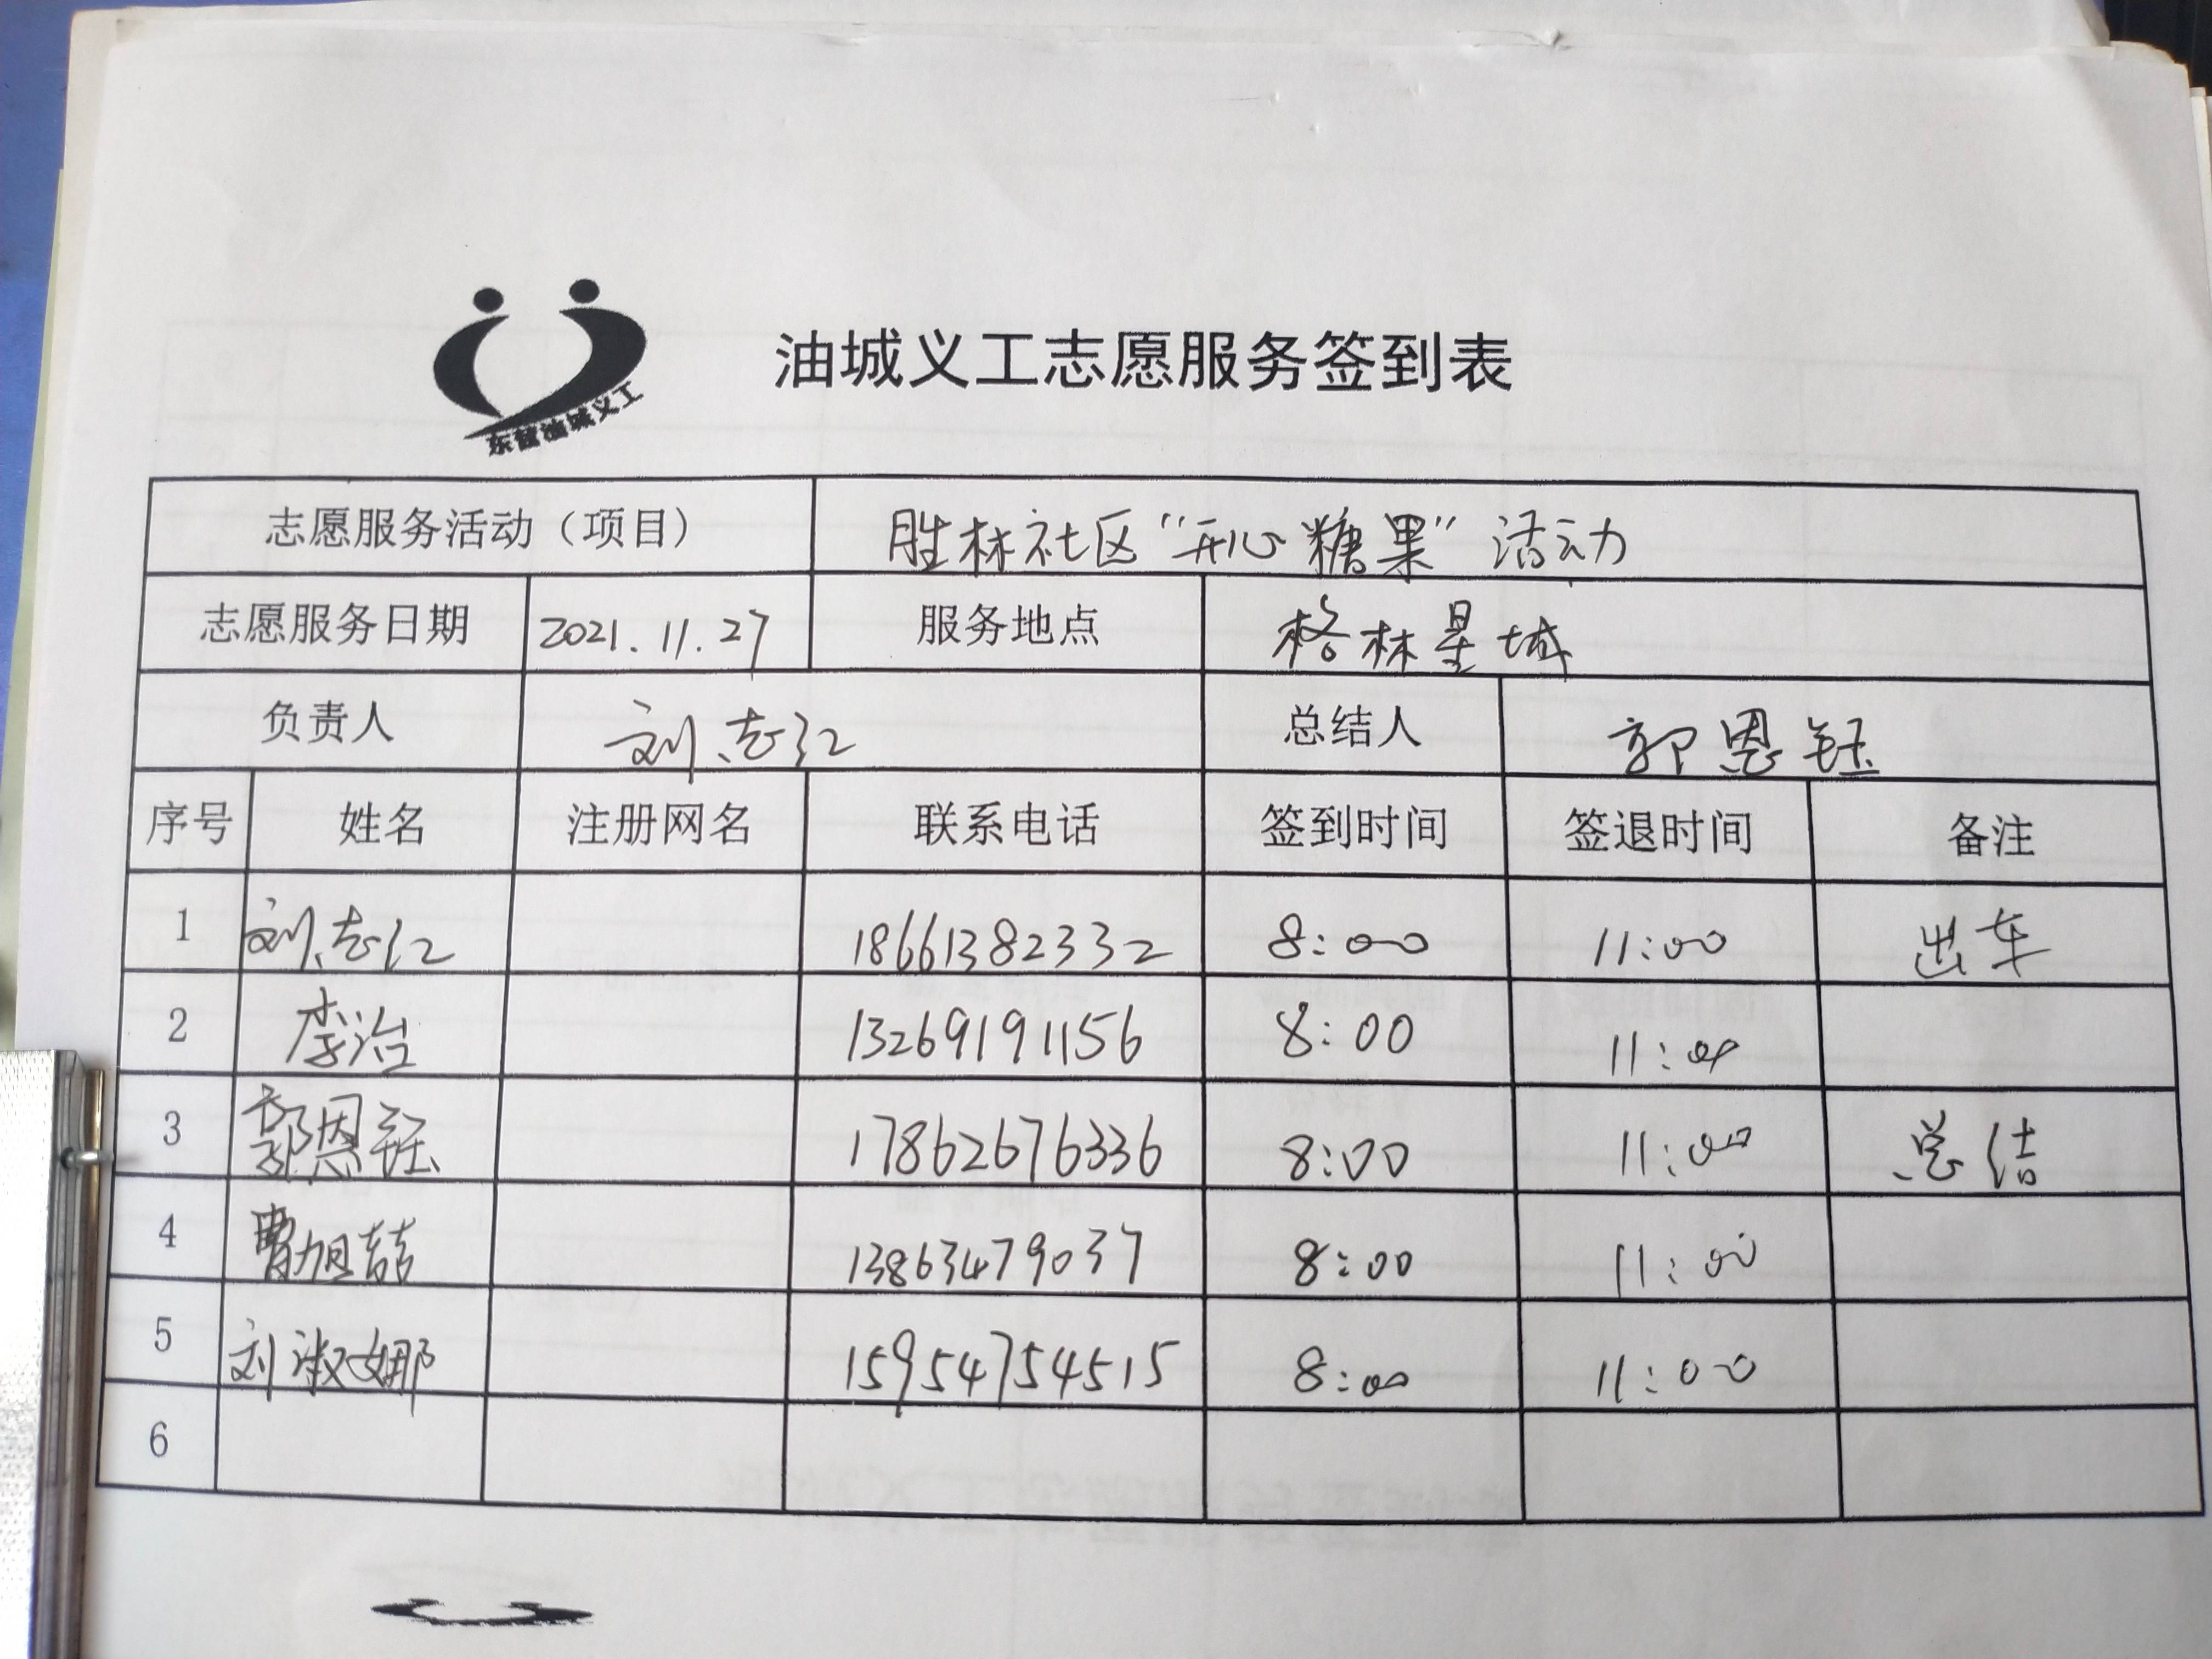 油城义工志愿服务签到表
东营油城义工
志愿服务活动（项目） 胜林社区“开心糖果”活动
志愿服务日期 2021.11.27 服务地点 格林星城
负责人 刘志江 总结人 郭恩钰
序号 姓名 注册网名 联系电话 签到时间 签退时间 备注
1 刘志江 18661382332 8:00 11:00 出车
2 李治 13269191156 8:00 11:00
3 郭恩钰 17862676336 8:00 11:00 总结
4 曹旭喆 13863479037 8:00 11:00
5 刘淑娜 15954754515 8:00 11:00
6